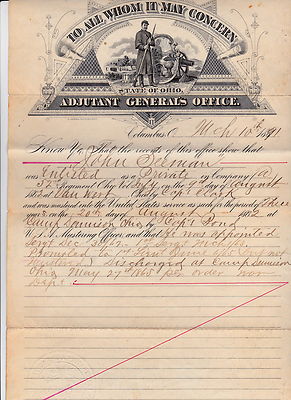 TO ALL WHOM IT MAY CONCERN
STATE OF OHIO,
ADJUTANT GENERALS OFFICE.
Columbus, O. Mch 10th 1891
Know Ye, That the records of this office show that
John
was Enlisted as a Private in Company
52 Regiment Ohio Vol on the 9 day of August
1862 at by Capt Clark
and was mustered into the United States service as such for the period of three
years on the 20th day of August 1862 at
Camp Dennison Ohio by Capt
U.S.A. Mustering Officer, and that he was appointed
Sergt Dec 1862. 1st Sergt
Promoted to 1st
Discharged at Camp Dennison
Ohio May 27th 1865 per order War
Dept